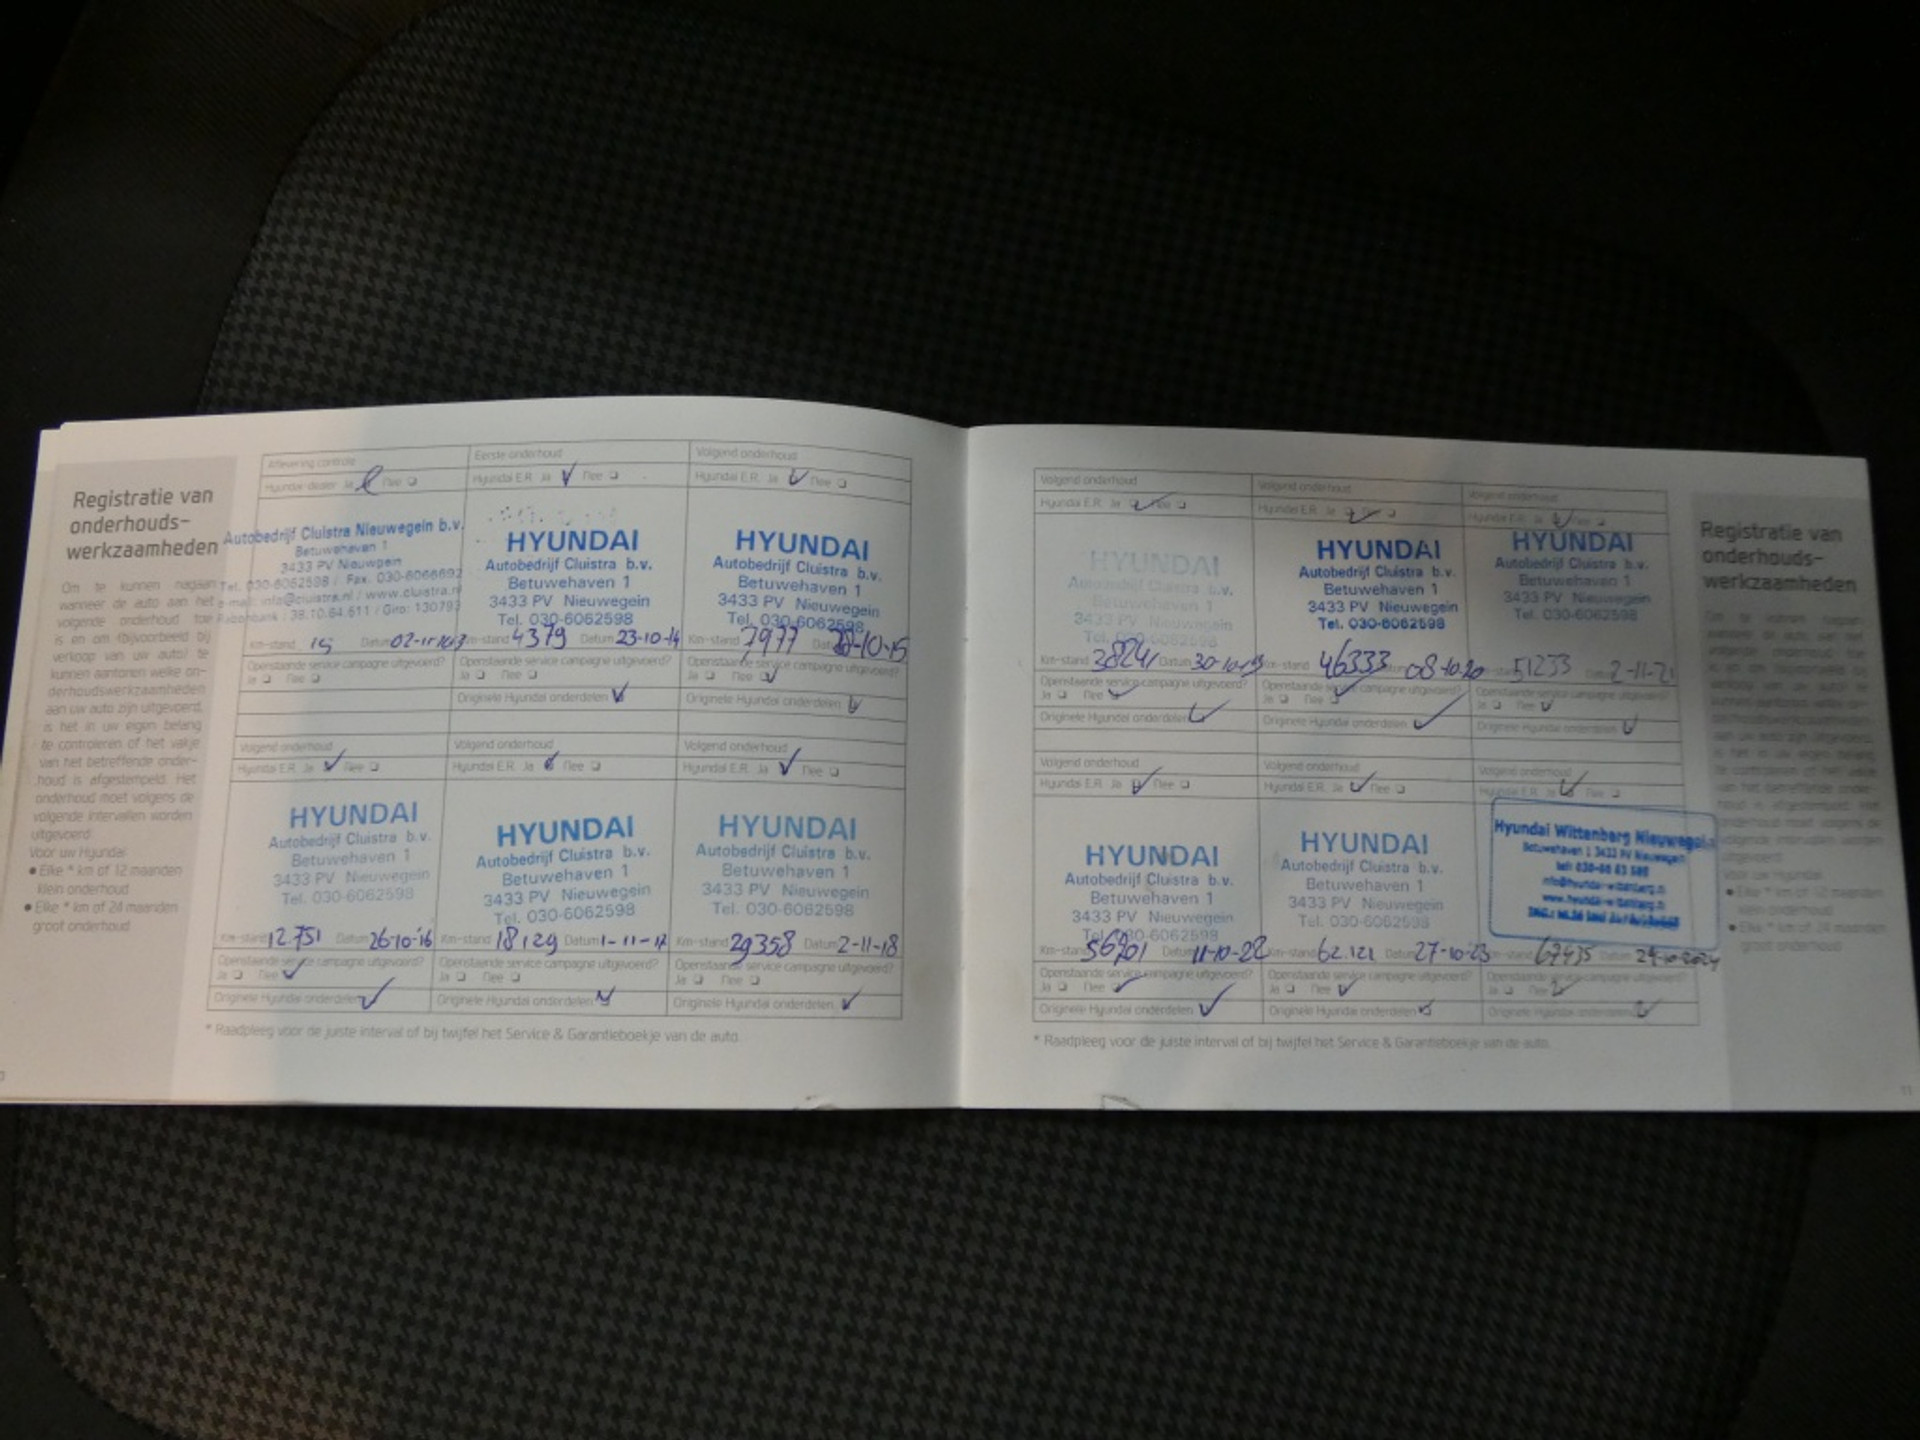 Registratie van
onderhouds-
werkzaamheden
Om te kunnen nagaan
wanneer de auto aan het
volgende onderhoud toe
is en om (bijvoorbeeld bij
verkoop van uw auto) te
kunnen aantonen welke on-
derhoudswerkzaamheden
aan uw auto zijn uitgevoerd,
is het in uw eigen belang
te controleren of het vakje
van het betreffende onder-
houd is afgestempeld. Het
onderhoud moet volgens de
volgende intervallen worden
uitgevoerd:
Voor uw Hyundai:
• Elke * km of 12 maanden
klein onderhoud
• Elke * km of 24 maanden
groot onderhoud
Aflevering controle
Hyundai-dealer Ja Nee
Autobedrijf Cluistra Nieuwegein b.v.
Betuwehaven 1
3433 PV Nieuwegein
Tel. 030-6062598 / Fax. 030-6066692
e-mail: info@cluistra.nl / www.cluistra.nl
Km-stand 15 Datum
Openstaande service campagne uitgevoerd?
Ja Nee
Eerste onderhoud
Hyundai E.R. Ja Nee
HYUNDAI
Autobedrijf Cluistra b.v.
Betuwehaven 1
3433 PV Nieuwegein
Tel. 030-6062598
Km-stand 4379 Datum 23-10-14
Openstaande service campagne uitgevoerd?
Ja Nee
Originele Hyundai onderdelen
Volgend onderhoud
Hyundai E.R. Ja Nee
HYUNDAI
Autobedrijf Cluistra b.v.
Betuwehaven 1
3433 PV Nieuwegein
Tel. 030-6062598
Km-stand 7977 Datum
Openstaande service campagne uitgevoerd?
Ja Nee
Originele Hyundai onderdelen
Volgend onderhoud
Hyundai E.R. Ja Nee
HYUNDAI
Autobedrijf Cluistra b.v.
Betuwehaven 1
3433 PV Nieuwegein
Tel. 030-6062598
Km-stand 12.751 Datum 26-10-'16
Openstaande service campagne uitgevoerd?
Ja Nee
Originele Hyundai onderdelen
Volgend onderhoud
Hyundai E.R. Ja Nee
HYUNDAI
Autobedrijf Cluistra b.v.
Betuwehaven 1
3433 PV Nieuwegein
Tel. 030-6062598
Km-stand 18129 Datum 1-11-17
Openstaande service campagne uitgevoerd?
Ja Nee
Originele Hyundai onderdelen
Volgend onderhoud
Hyundai E.R. Ja Nee
HYUNDAI
Autobedrijf Cluistra b.v.
Betuwehaven 1
3433 PV Nieuwegein
Tel. 030-6062598
Km-stand 29358 Datum 2-11-18
Openstaande service campagne uitgevoerd?
Ja Nee
Originele Hyundai onderdelen
* Raadpleeg voor de juiste interval of bij twijfel het Service & Garantieboekje van de auto.
Volgend onderhoud
Hyundai E.R. Ja Nee
HYUNDAI
Autobedrijf Cluistra b.v.
Betuwehaven 1
3433 PV Nieuwegein
Tel. 030-6062598
Km-stand Datum 30-10-19
Openstaande service campagne uitgevoerd?
Ja Nee
Originele Hyundai onderdelen
Volgend onderhoud
Hyundai E.R. Ja Nee
HYUNDAI
Autobedrijf Cluistra b.v.
Betuwehaven 1
3433 PV Nieuwegein
Tel. 030-6062598
Km-stand 46333 08-10-20
Openstaande service campagne uitgevoerd?
Ja Nee
Originele Hyundai onderdelen
Volgend onderhoud
Hyundai E.R. Ja Nee
HYUNDAI
Autobedrijf Cluistra b.v.
Betuwehaven 1
3433 PV Nieuwegein
Tel. 030-6062598
51233 2-11-21
Openstaande service campagne uitgevoerd?
Ja Nee
Originele Hyundai onderdelen
Volgend onderhoud
Hyundai E.R. Ja Nee
HYUNDAI
Autobedrijf Cluistra b.v.
Betuwehaven 1
3433 PV Nieuwegein
Tel. 030-6062598
Km-stand Datum 11-10-22
Openstaande service campagne uitgevoerd?
Ja Nee
Originele Hyundai onderdelen
Volgend onderhoud
Hyundai E.R. Ja Nee
HYUNDAI
Autobedrijf Cluistra b.v.
Betuwehaven 1
3433 PV Nieuwegein
Tel. 030-6062598
Km-stand 62.121 Datum 27-10-23
Openstaande service campagne uitgevoerd?
Ja Nee
Originele Hyundai onderdelen
Volgend onderhoud
Hyundai E.R. Ja Nee
Hyundai Wittenberg Nieuwegein
Betuwehaven 1 3433 PV Nieuwegein
Datum
Openstaande service campagne uitgevoerd?
Ja Nee
Originele Hyundai onderdelen
* Raadpleeg voor de juiste interval of bij twijfel het Service & Garantieboekje van de auto.
Registratie van
onderhouds-
werkzaamheden
11